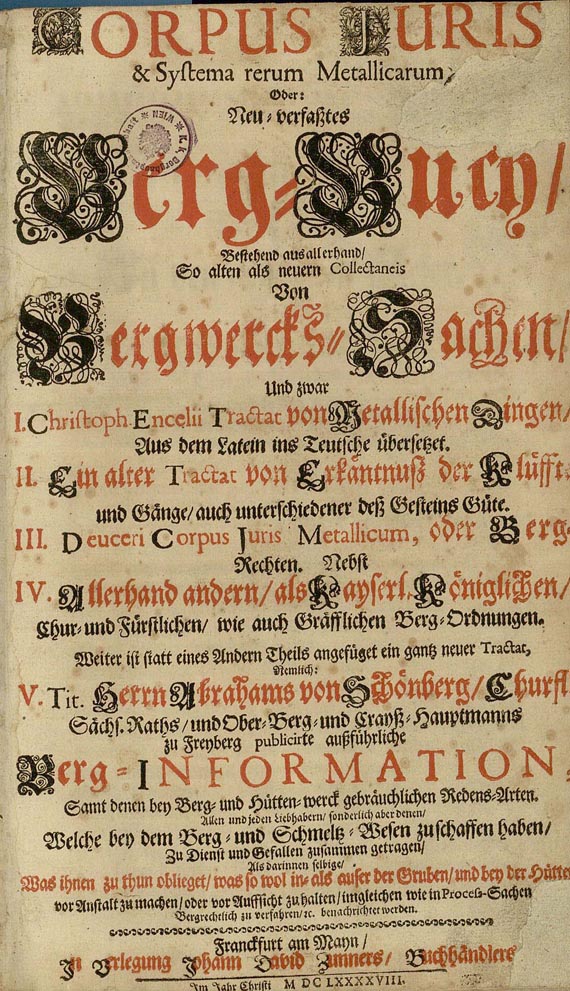 CORPUS JURIS
& Systema rerum Metallicarum,
Oder:
Neu-verfaßtes
Berg-Buch/
Bestehend aus allerhand/
So alten als neuern Collectaneis
Von
Bergwercks-Sachen/
Und zwar
I. Christoph Encelii Tractat von Metallischen Dingen/
Aus dem Latein ins Teutsche übersetzet.
II. Ein alter Tractat von Erkäntnuß der Klüfft-
und Gänge/ auch unterschiedener deß Gesteins Güte.
III. Deuceri Corpus Juris Metallicum, oder Berg-
Rechten. Nebst
IV. Allerhand andern/ als Kayserl. Königlichen/
Chur- und Fürstlichen/ wie auch Gräfflichen Berg-Ordnungen.
Weiter ist statt eines Andern Theils angefüget ein gantz neuer Tractat,
Nemlich:
V. Tit. Herrn Abrahams von Schönberg/ Churfl.
Sächs. Raths/ und Ober-Berg- und Crayß-Hauptmanns
zu Freyberg publicirte außführliche
Berg-INFORMATION,
Samt denen bey Berg- und Hütten-werck gebräuchlichen Redens-Arten.
Allen und jeden Liebhabern/ sonderlich aber denen/
Welche bey dem Berg- und Schmeltz-Wesen zu schaffen haben/
Zu Dienst und Gefallen zusammen getragen/
Als darinnen selbige/
Was ihnen zu thun oblieget/ was so wol in- als ausser der Gruben/ und bey der Hütten
vor Anstalt zu machen/ oder vor Auffsicht zu halten/ imgleichen wie in Process-Sachen
Bergrechtlich zu verfahren/ ꝛc. benachrichtet werden.
Franckfurt am Mayn/
In Verlegung Johann David Zunners/ Buchhändlers
Im Jahr Christi M DC LXXXXVIII.